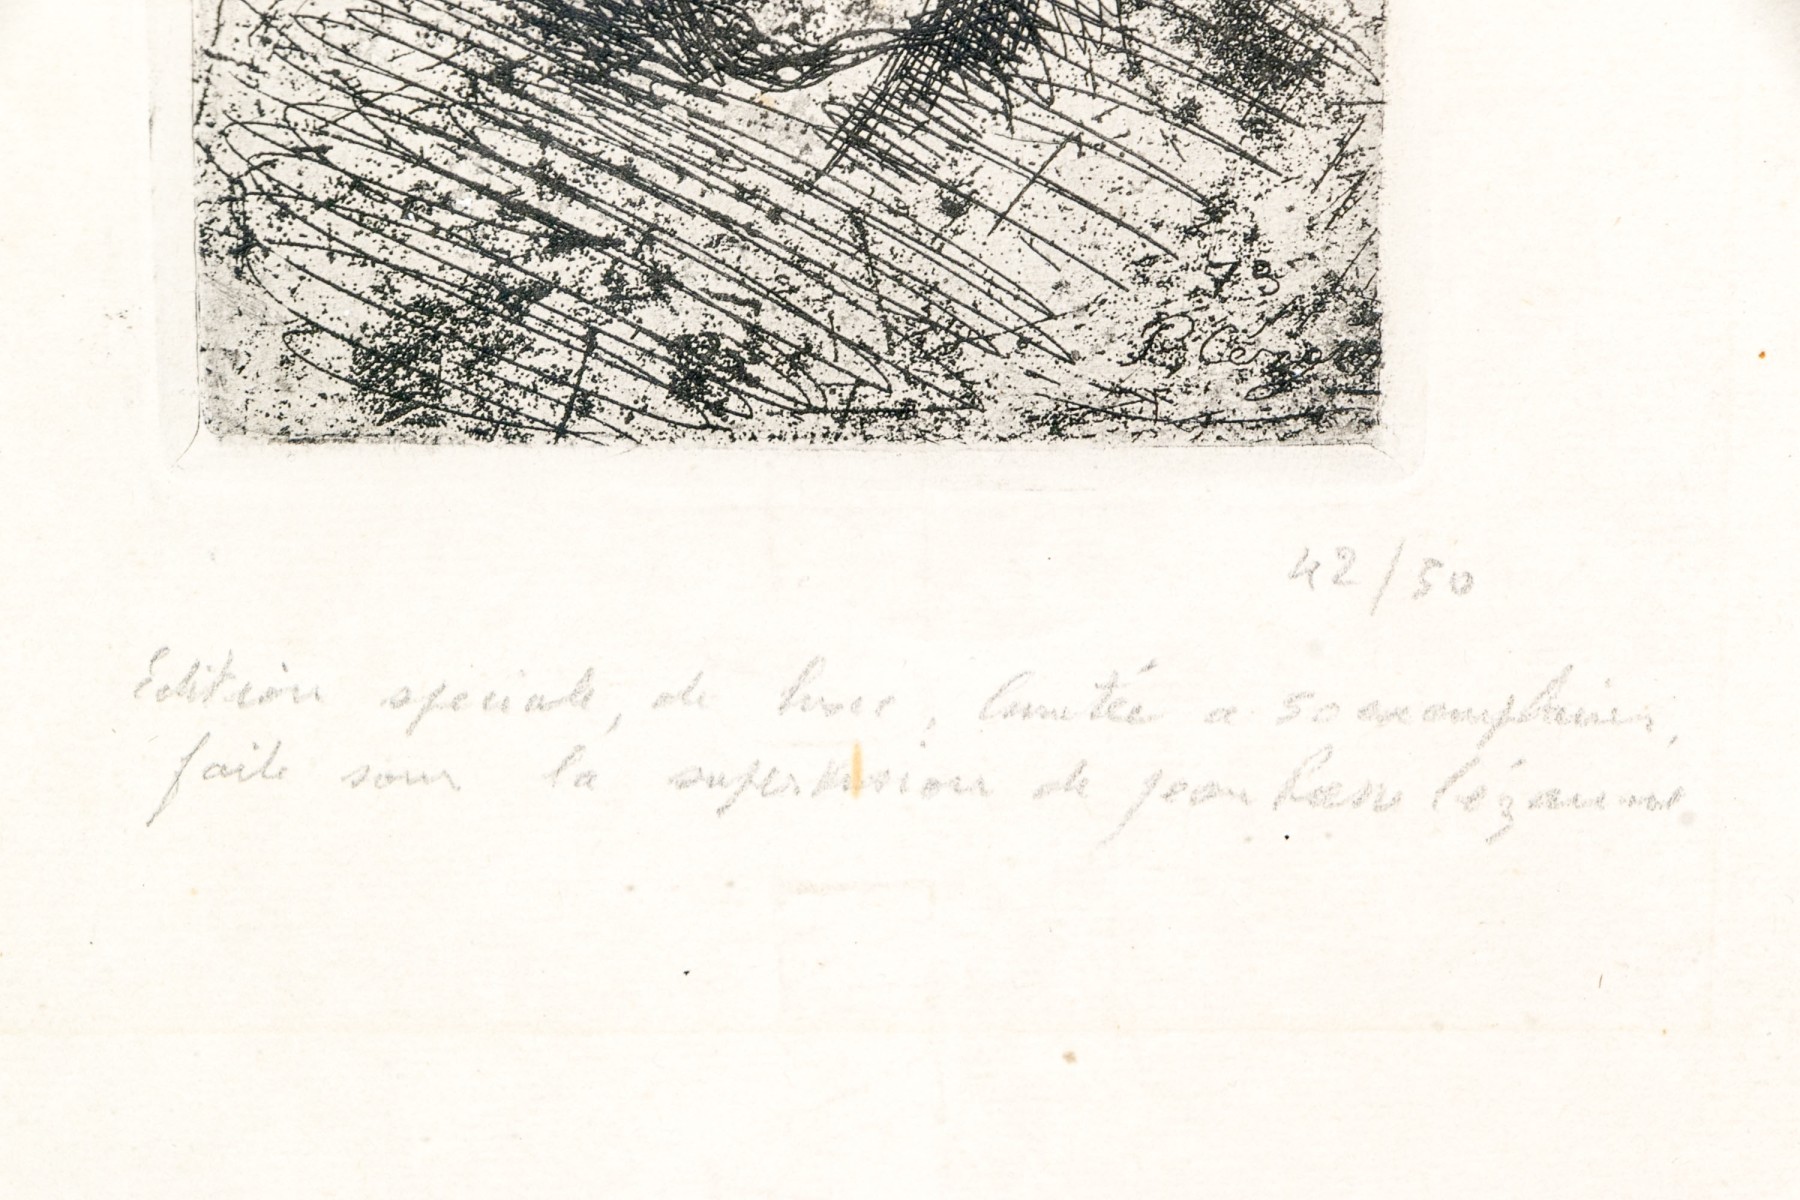 73
P Cézanne
42/50
Edition speciale, de luxe, limitée a 50 exemplaires,
faite sous la supervision de jean Paul Cézanne.